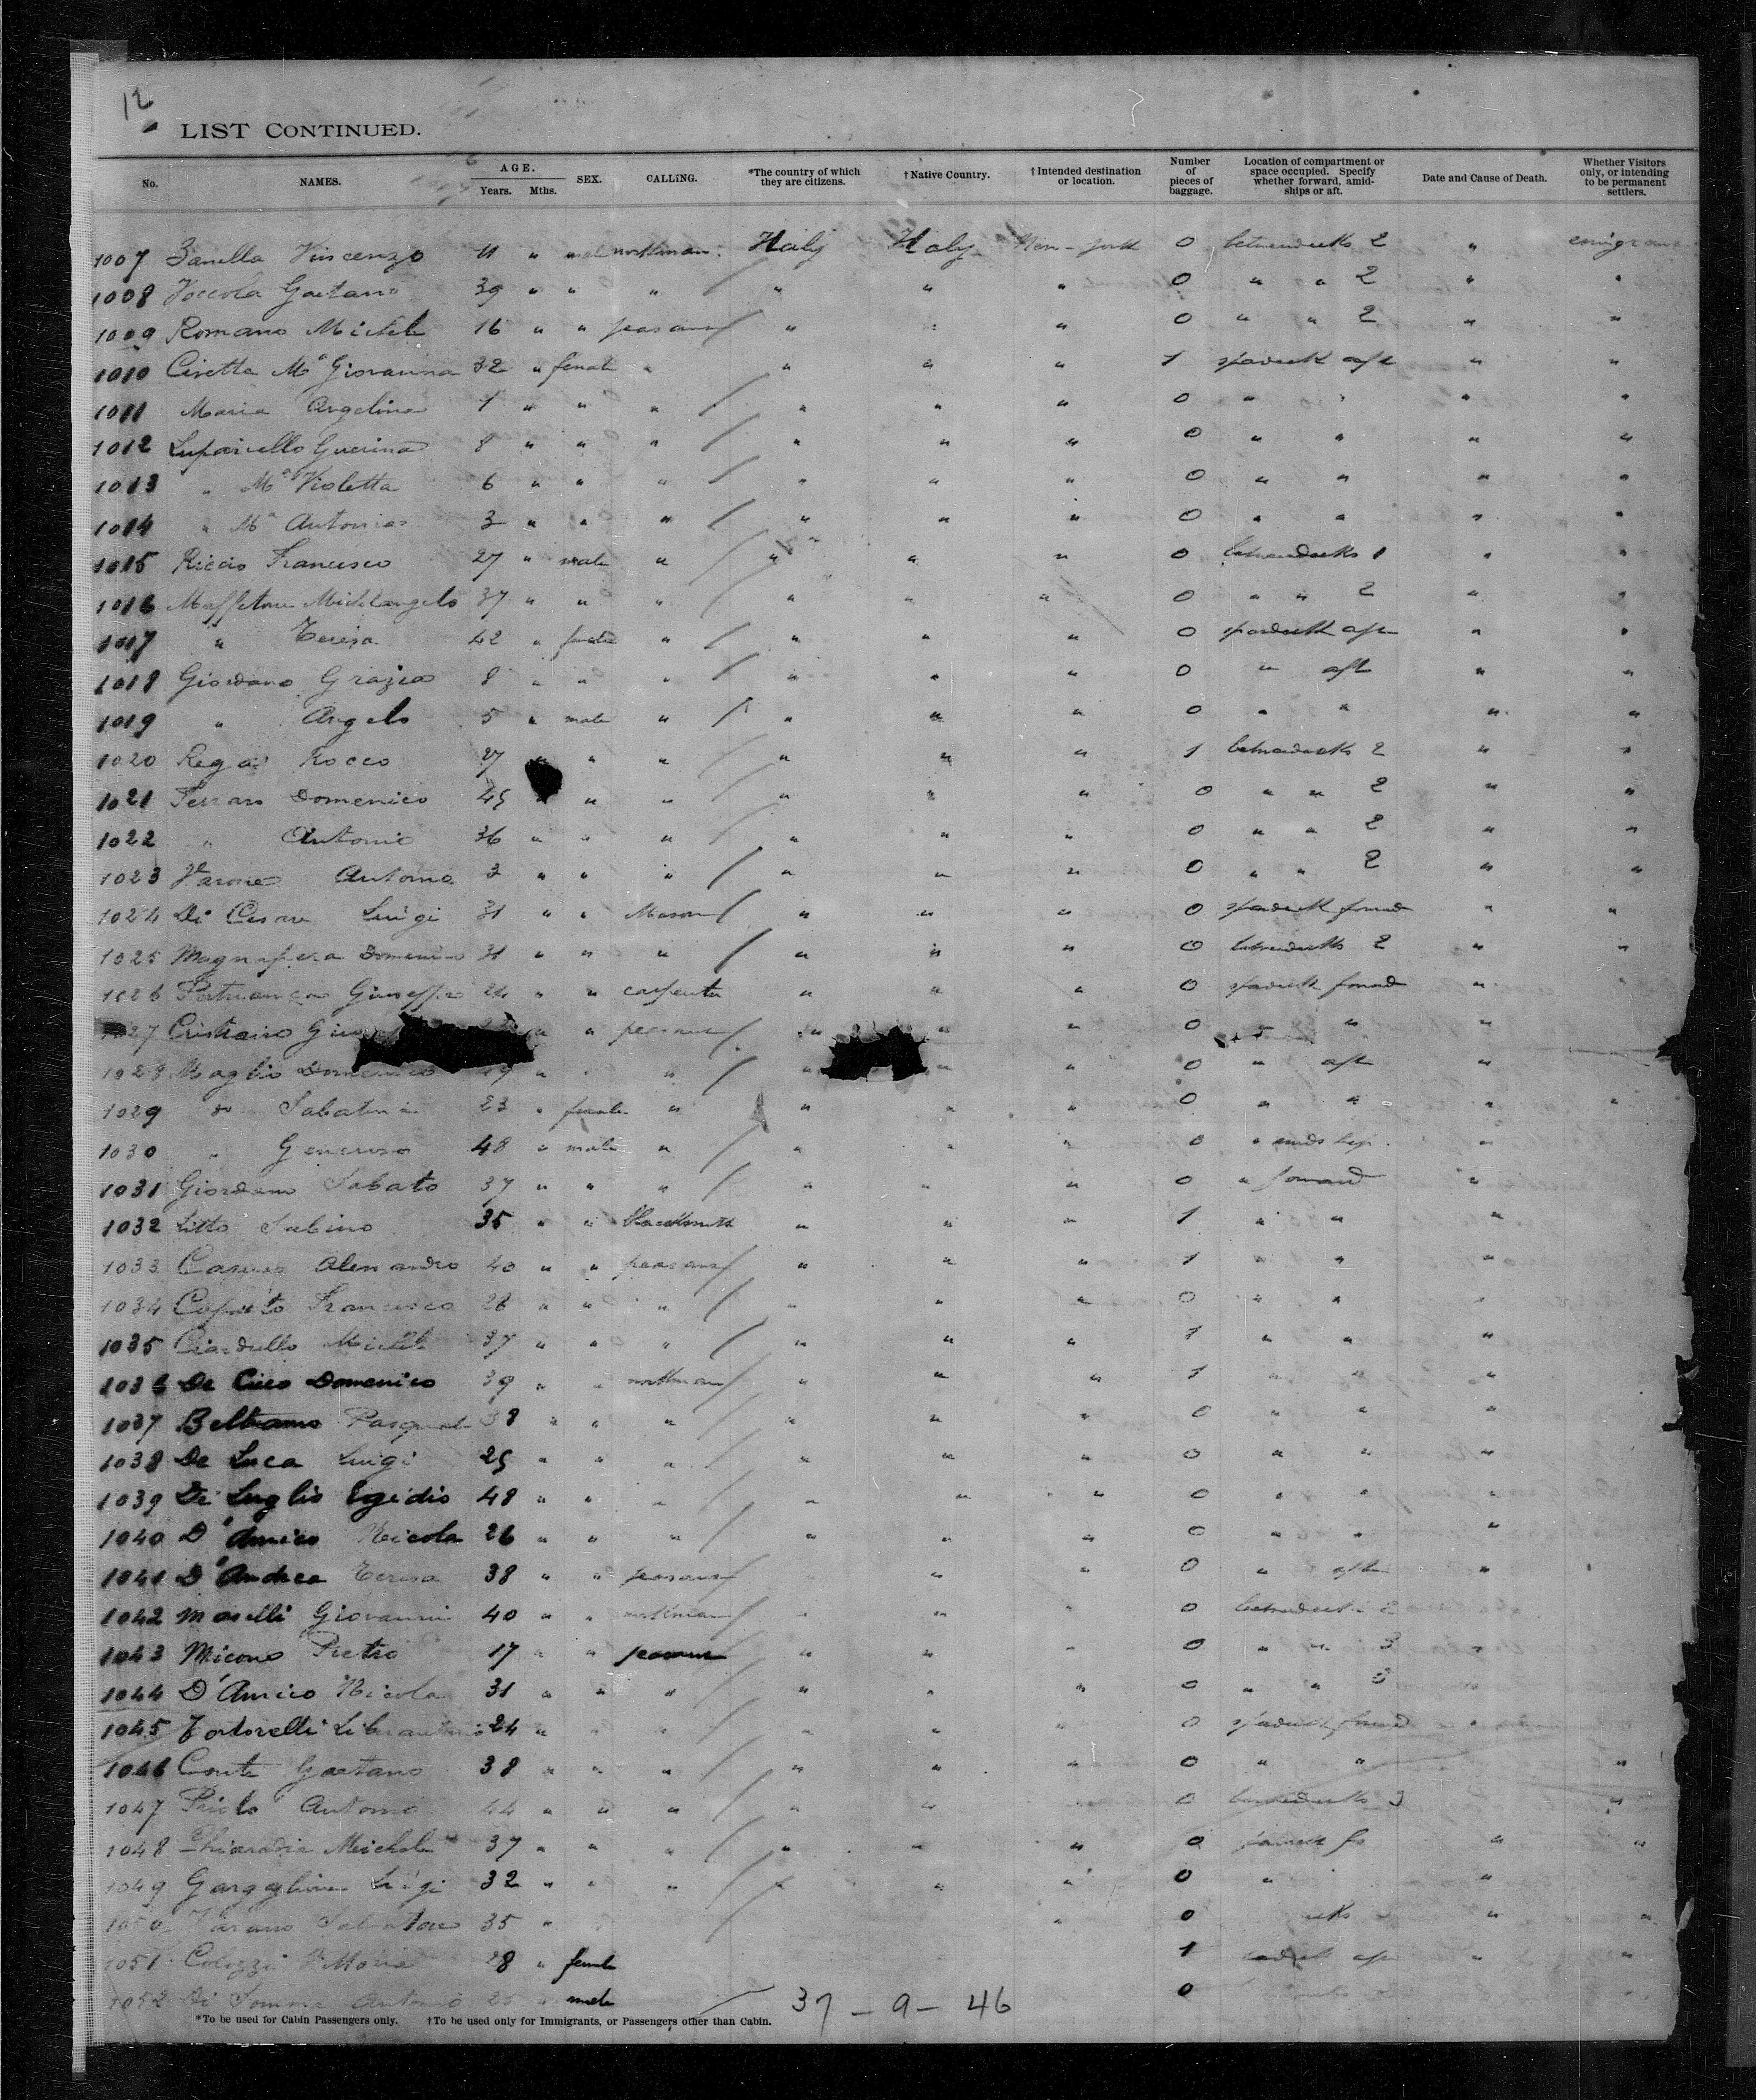 12
LIST CONTINUED.
No. NAMES. AGE. Years. Mths. SEX. CALLING. *The country of which they are citizens. †Native Country. †Intended destination or location. Number of pieces of baggage. Location of compartment or space occupied. Specify whether forward, amidships or aft. Date and Cause of Death. Whether Visitors only, or intending to be permanent settlers.
1007 Zanella Vincenzo 41 " male workman Italy Italy New-york 0 betweendecks 2 "
1008 Gaetano 39 " " " " " " 0 " " 2 " "
1009 Romano Michele 16 " " peasant " " " 0 " " 2 " "
1010 Ciretta Mª Giovanna 32 " female " " " " 1 spardeck aft " "
1011 Maria Angelina 1 " " " " " " 0 " " " "
1012 Luparello Guerina 8 " " " " " " 0 " " " "
1013 " Mª Violetta 6 " " " " " " 0 " " " "
1014 " Mª Antonia 3 " " " " " " 0 " " " "
1015 Riccio Francesco 27 " male " " " " 0 betweendecks 1 " "
1016 Maffetone Michelangelo 37 " " " " " " 0 " " 2 " "
1017 " Teresa 42 " female " " " " 0 spardeck aft " "
1018 Giordano Grazia 8 " " " " " " 0 " aft " "
1019 " Angelo 5 " male " " " " 0 " " " "
1020 Rega Rocco 27 " " " " " " 1 betweendecks 2 " "
1021 Ferraro Domenico 45 " " " " " " 0 " " 2 " "
1022 " Antonio 36 " " " " " " 0 " " 2 " "
1023 Varone Antonio 3 " " " " " " 0 " " 2 " "
1024 Di Cesare Luigi 31 " " Mason " " " 0 spardeck forward " "
1025 Domenico 31 " " " " " " 0 betweendecks 2 " "
1026 Giuseppe 24 " " carpenter " " " 0 spardeck forward "
27 Cristiano " " peasant " " " 0 " "
1028 Maglio Domenico " " " " " " 0 " aft "
1029 do Sabatina 23 " female " " " " 0 " " " "
1030 " Generoso 48 " male " " " " 0 " amidship "
1031 Giordano Sabato 37 " " " " " " 0 " forward "
1032 Litto Sabino 35 " " blacksmith " " " 1 " " "
1033 Caruso Alessandro 40 " " peasant " " " 1 " " "
1034 Caputo Francesco 28 " " " " " " 0 " " "
1035 Ciardullo Michele 37 " " " " " " 1 " " "
1036 De Cicco Domenico 39 " " workman " " " 1 " " "
1037 Beltramo Pasquale 38 " " " " " " 0 " " "
1038 De Luca Luigi 25 " " " " " " 0 " " "
1039 De Luglio Egidio 48 " " " " " " 0 " " "
1040 D'Amico Nicola 26 " " " " " " 0 " " "
1041 D'Andrea Teresa 38 " " peasant " " 0 " aft "
1042 Maselli Giovanni 40 " " workman " " " 0 betweendecks 2
1043 Micono Pietro 17 " " peasant " " " 0 " " 3 "
1044 D'Amico Nicola 31 " " " " " " 0 " " 3
1045 Tortorelli 24 " " " " " " 0 spardeck forward "
1046 Conte Gaetano 38 " " " " " " 0 " " "
1047 Antonio 44 " " " " " 0 betweendecks 3 "
1048 Michele 37 " " " " " " 0 " "
1049 Luigi 32 " " " " " " 0 " "
1050 Salvatore 35 " " 0 " "
1051 Colozzi Mª Maria 28 " female 1 " "
1052 Di Somma Antonio " male 0
37 - 9 - 46
*To be used for Cabin Passengers only. †To be used only for Immigrants, or Passengers other than Cabin.